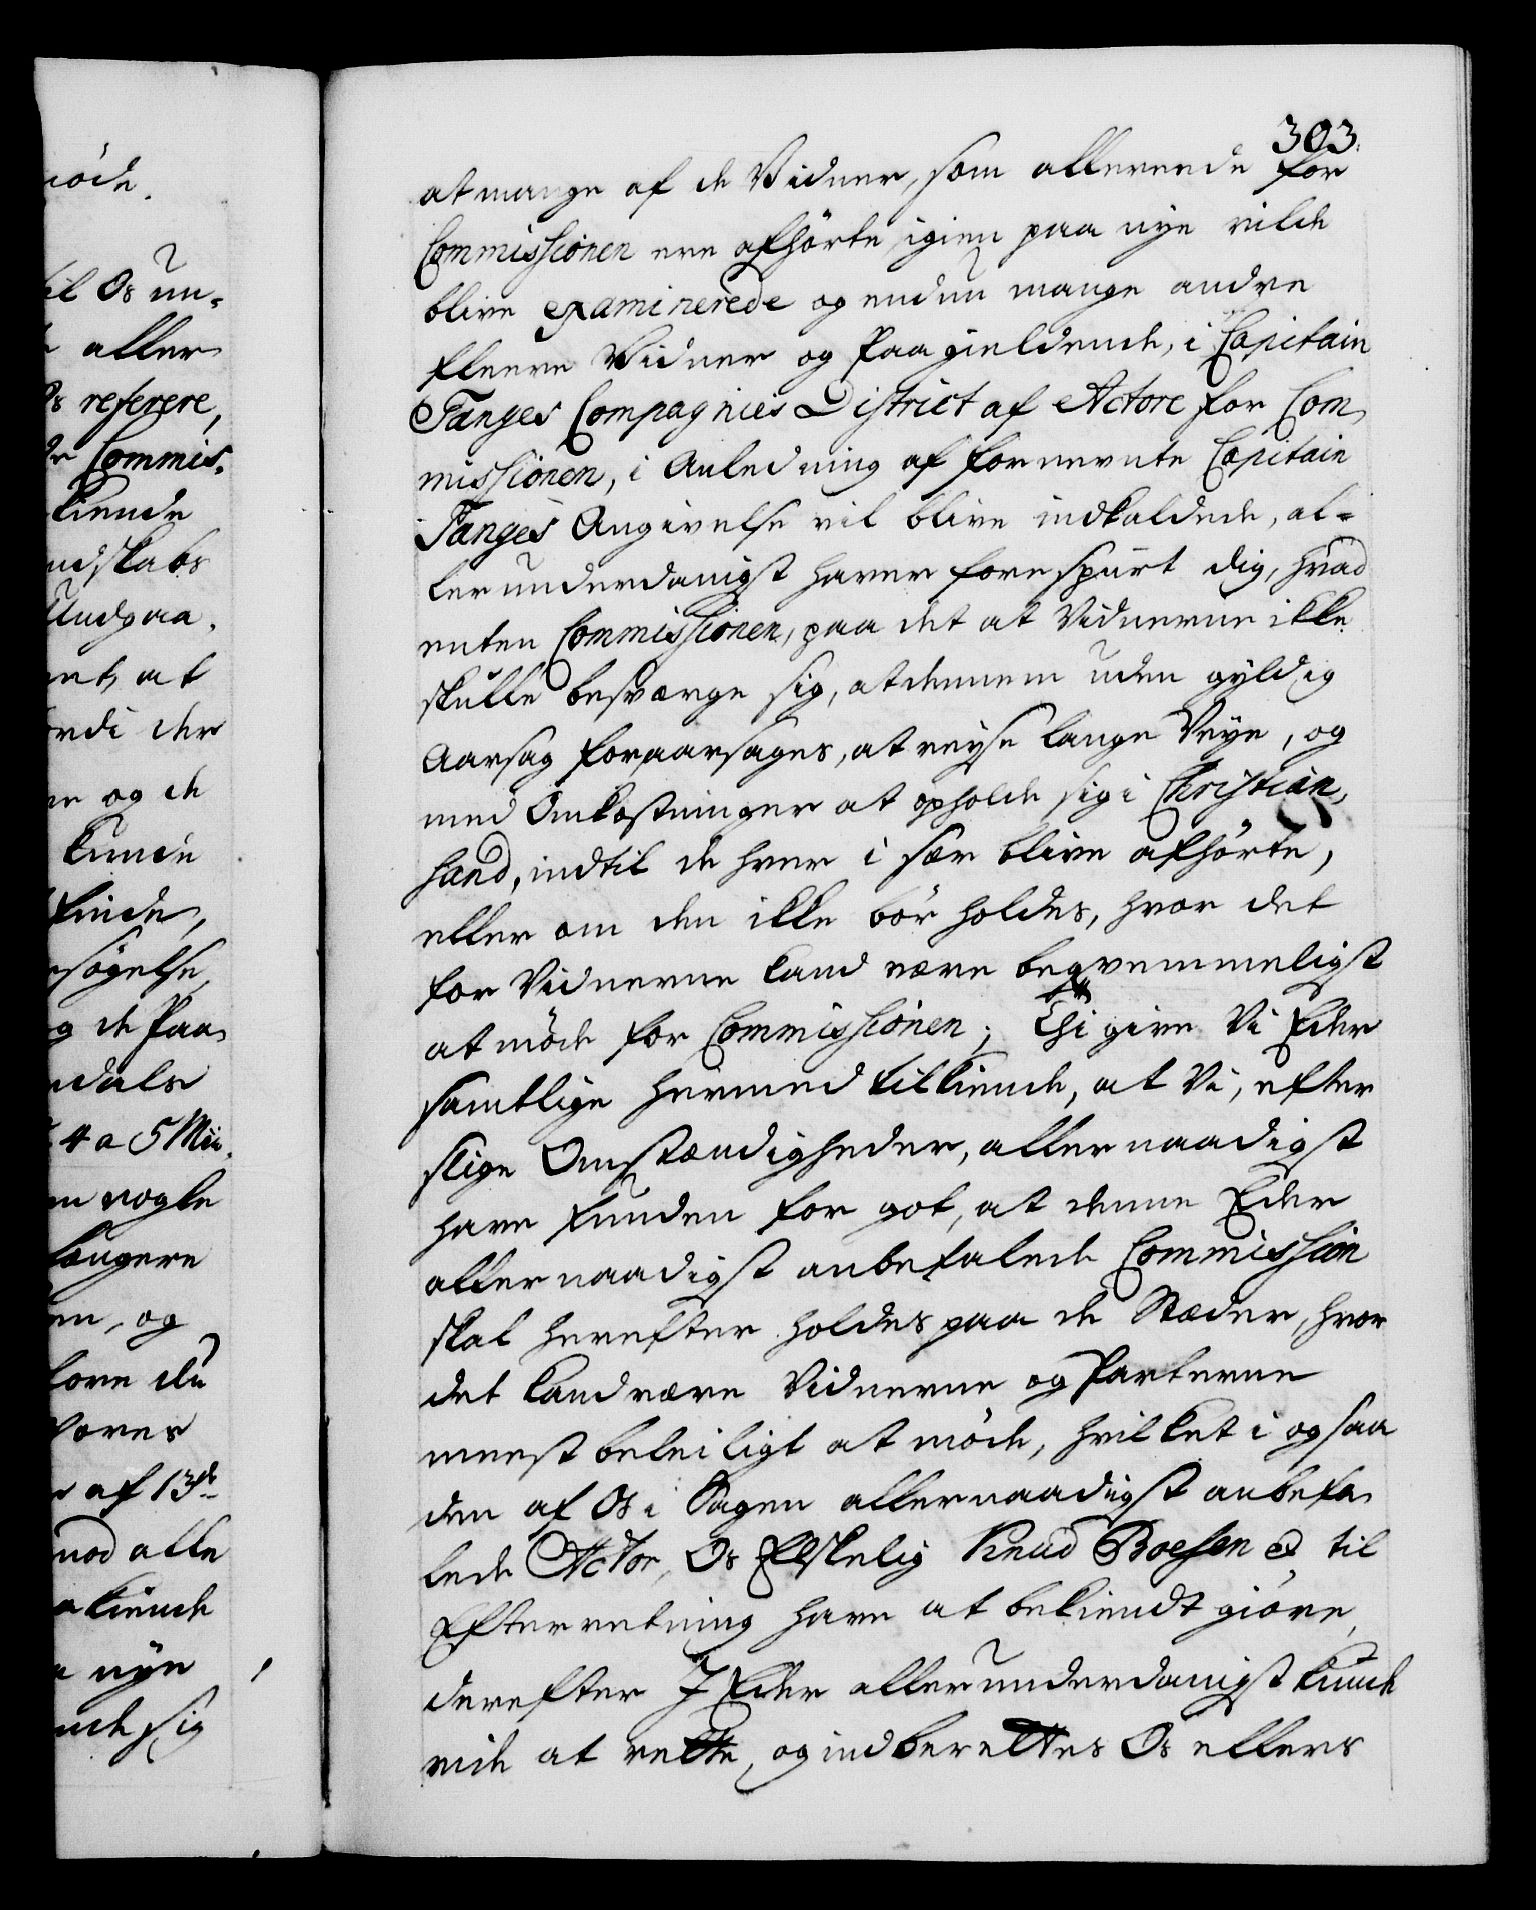 303.
at mange af de Vidner, som allereede for
Commissionen ere afhörte igien paa nye vilde
blive examinerede og endnu mange andre
fleere Vidner og Paagieldende, i Capitain
Tanges Compagnies District af Actore for Com,
missionen, i Anledning af fornevnte Capitain
Tanges Angivelse vil blive indkaldede, al-
lerunderdanigst haver forespurt dig, hvad
enten Commissionen, paa det at Vidnerne ikke
skulle besværge sig, at dennem uden gyldig
Aarsag foraarsages, at reyse lange Veye, og
med Omkostninger at opholde sig i Christian,
sand, indtil de hver i sær blive afhörte,
eller om den ikke bör holdes, hvor det
for Vidnerne kand være beqvemmeligst
at möde for Commissionen; Thi give Vi Eder
samtlige hermed tilkiende, at Vi, efter
slige Omstændigheder, allernaadigst
have funden for got, at denne Eder
allernaadigst anbefalede Commission
skal herefter holdes paa de Stæder, hvor
det kand være Vidnerne og Parterne
meest beleiligt at möde, hvilket i ogsaa
den af Os i Sagen allernaadigst anbefa,
lede Actor, Os Elskelig Knud Boesen til
Efterretning have at bekiendtgiöre,
derefter I Eder allerunderdanigst kunde
vide at rette, og indberettes Os ellers
nöde.
til Os un-
aller
Os referere,
Commis,
kiende
ndskabs
Undgaa,
at
fordi der
og de
kunde
finde,
sögelse,
og de Paa,
ndals
4 a 5 Mii,
nogle
længere
og
fore du
Vores
af 13de
mod alle
kiende
nye
sig